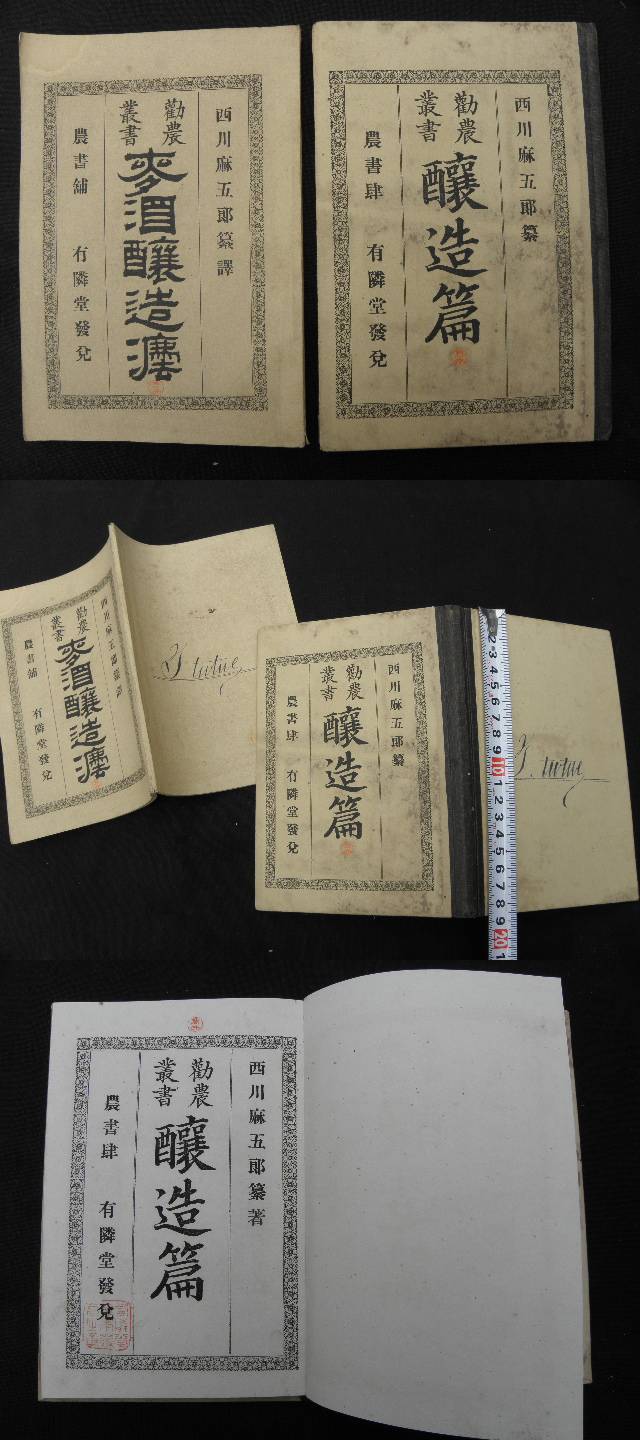 西川麻五郎纂譯
勸農
叢書
麥酒釀造灋
農書舖 有隣堂發兌
西川麻五郎纂
勸農
叢書
釀造篇
農書肆 有隣堂發兌
西川麻五郎纂譯
勸農
叢書
麥酒釀造灋
農書舖 有隣堂發兌
西川麻五郎纂
勸農
叢書
釀造篇
農書肆 有隣堂發兌
2 3 4 5 6 7 8 9 10 1 2 3 4 5 6 7 8 9 20 1
西川麻五郎纂著
勸農
叢書
釀造篇
農書肆 有隣堂發兌